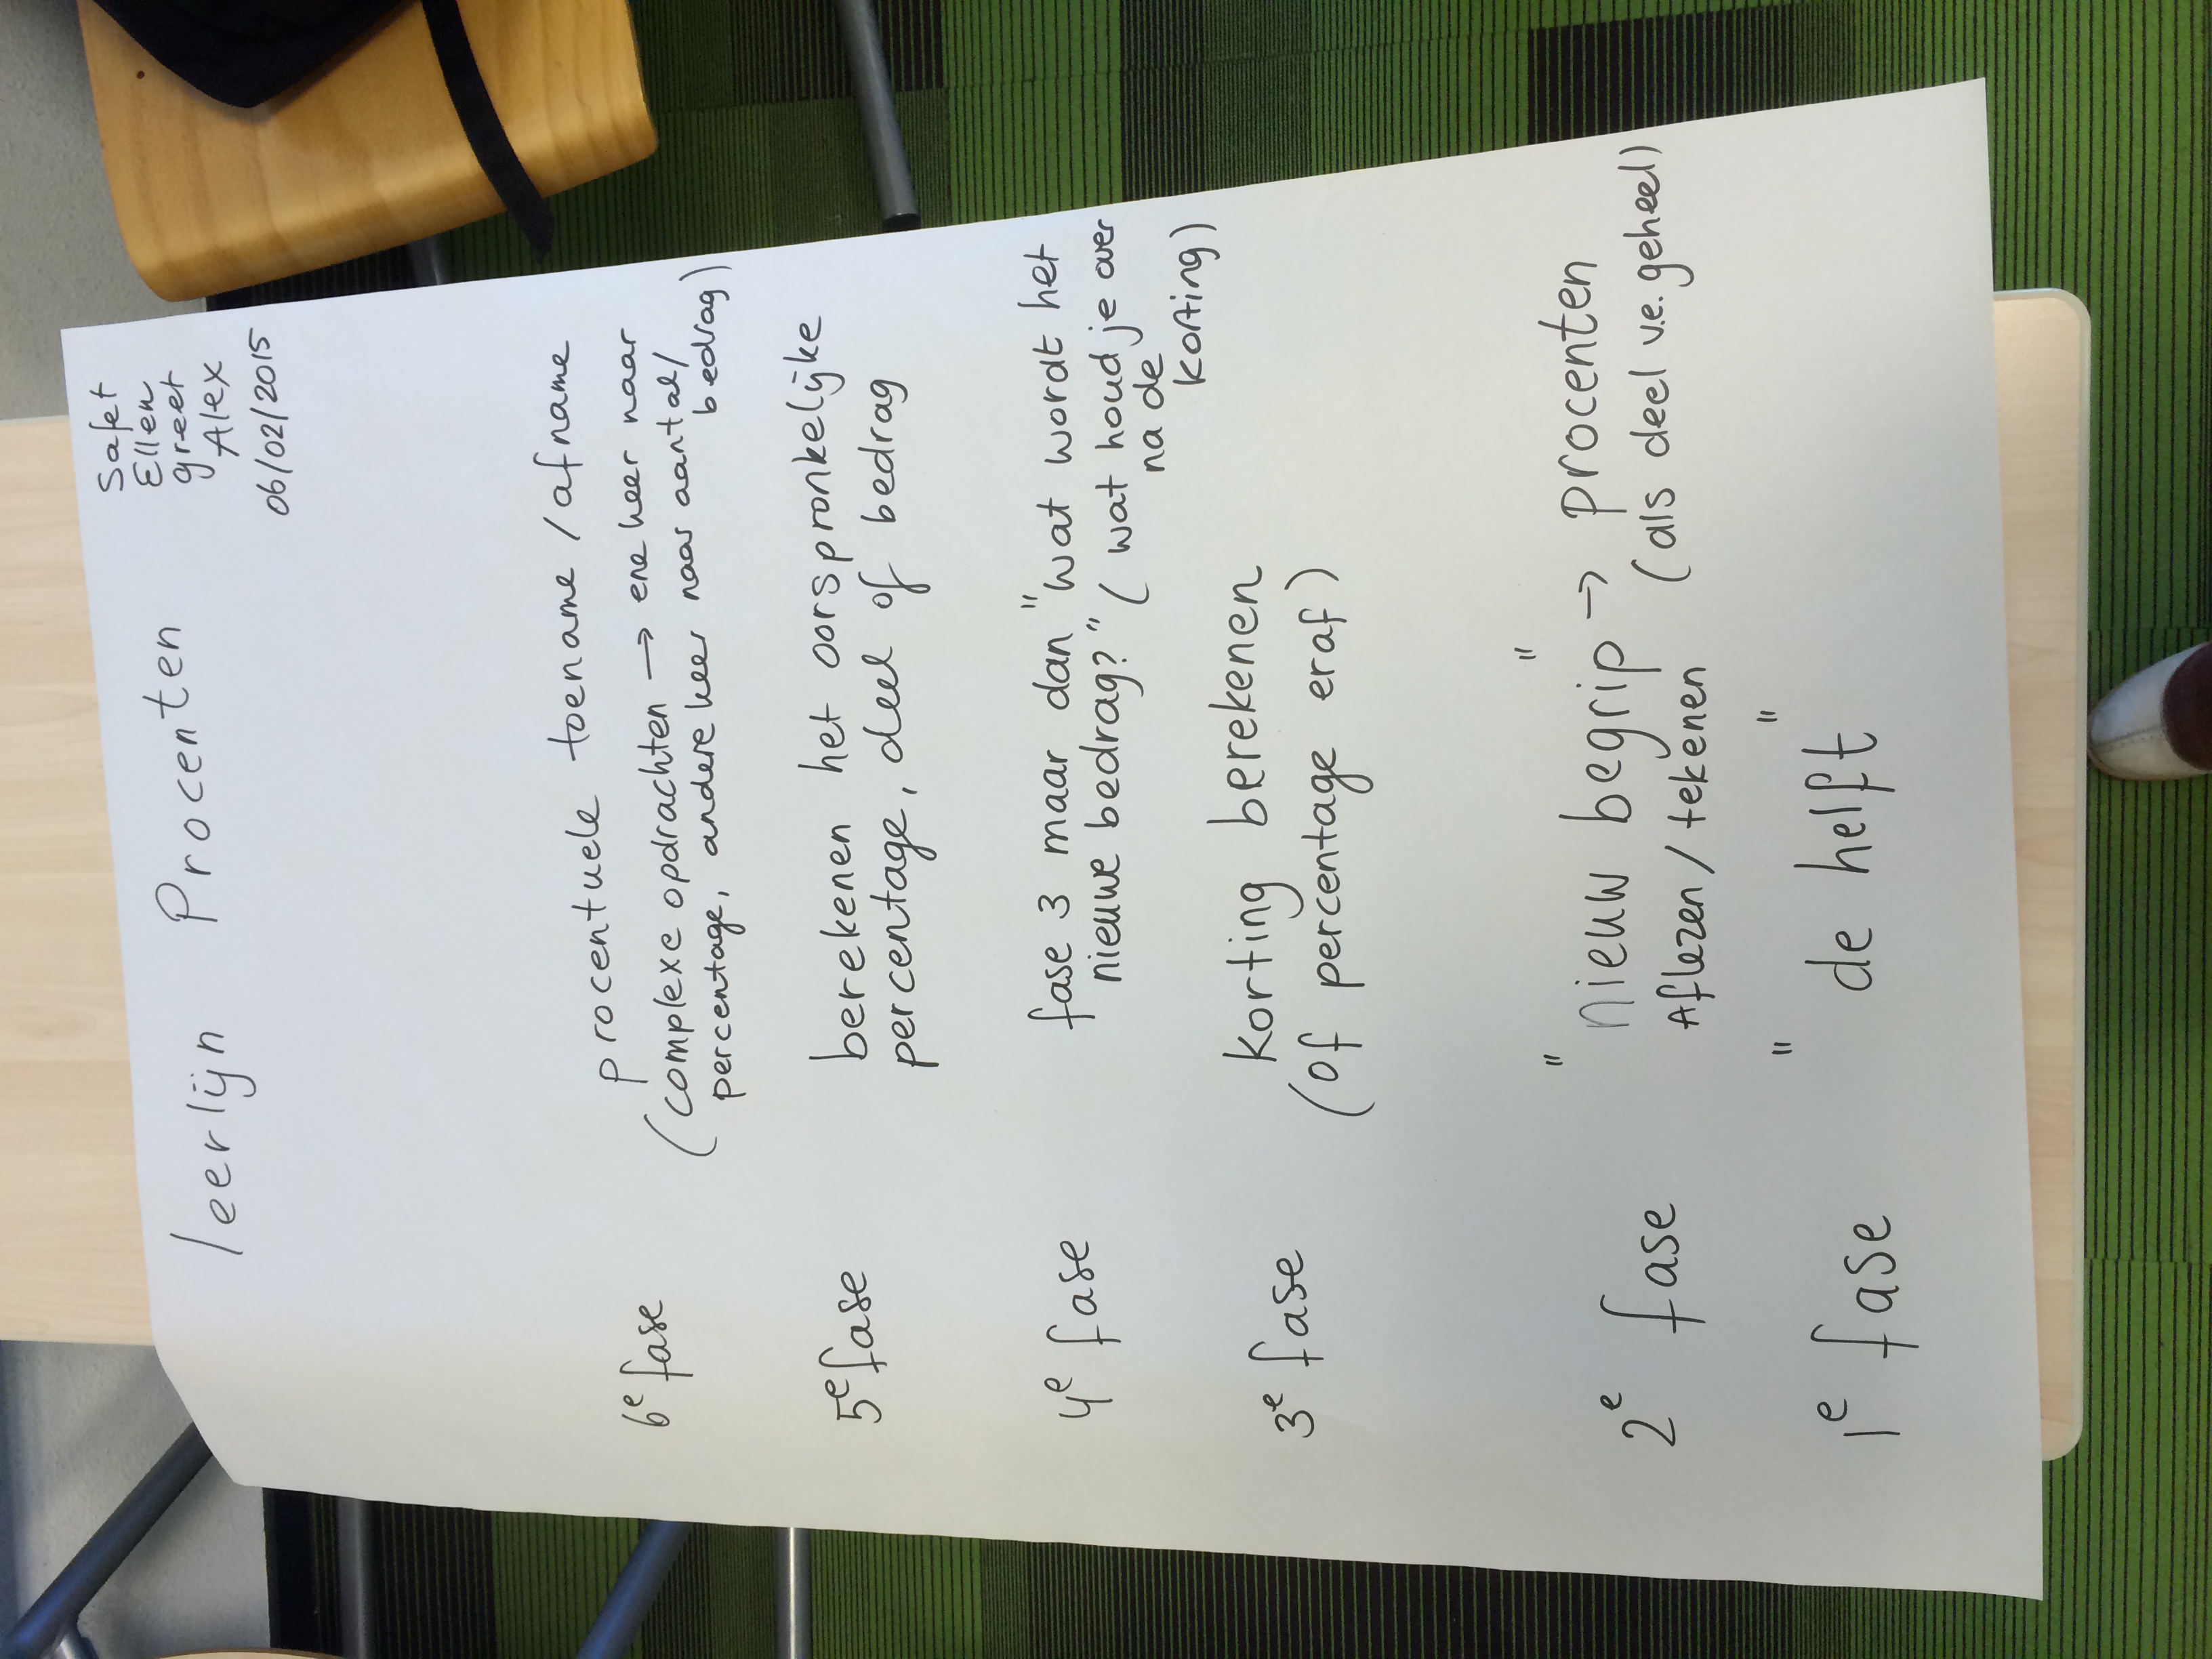 leerlijn Procenten
Safet
Ellen
greet
Alex
06/02/2015
6e fase procentuele toename/afname
(complexe opdrachten → ene keer naar
percentage, andere keer naar aantal/
bedrag)
5e fase berekenen het oorspronkelijke
percentage, deel of bedrag
4e fase fase 3 maar dan "wat wordt het
nieuwe bedrag?" (wat houd je over
na de
korting)
3e fase korting berekenen
(of percentage eraf)
2e fase "nieuw begrip" → procenten
Aflezen/tekenen (als deel v.e. geheel)
1e fase "de helft"